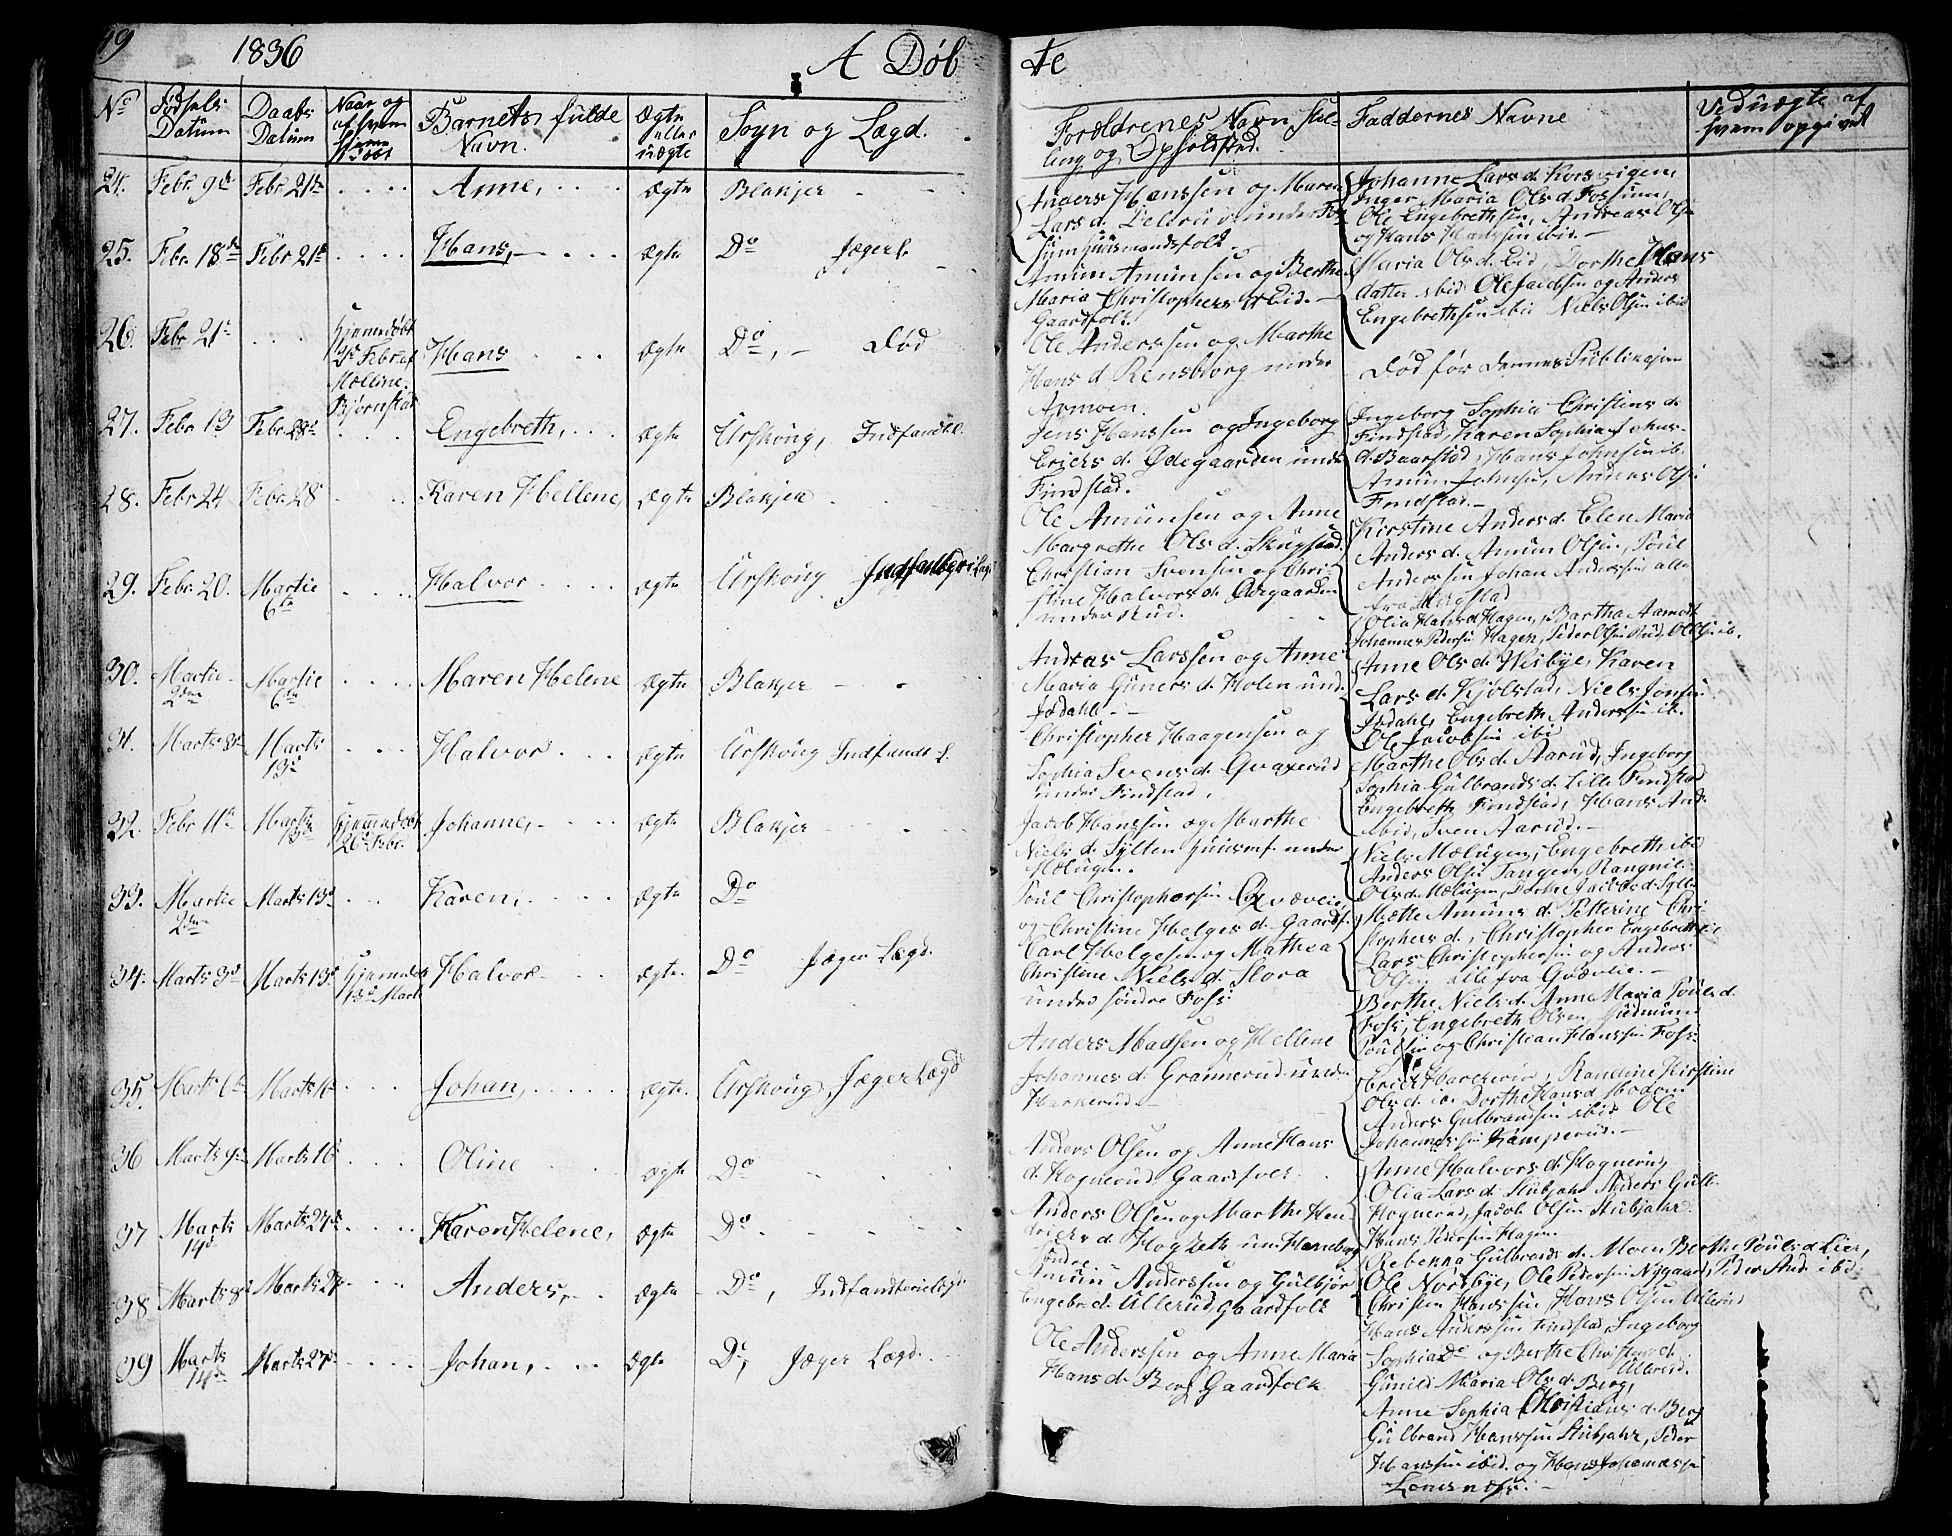 49 1836 A Døb te
No Fødsels Datum Daabs Datum Naar og af hvem hjem døbt Barnets fulde Navn. Ægte eller uægte Sogn og Lægd. Forældrenes Navn Stilling og Opholdsted. Faddernes Navne Ved uægte af hvem opgivet
24. Febr. 9de Febr 21de Anne, ægte Blakjer
Anders Hanssen og Maren
Lars d.
Huusmandsfolk.
Johanne Lars d.
Inger Maria Ols d. Fossum,
Ole Engebrethsen, Andreas Ols
og Hans Hanssen ibid. —
25. Febr. 18de Febr 21de Hans, ægte Do Jægerl.
Amun Amunsen og Berthe
Maria Christophers d. ibid. —
Gaardfolk.
Maria Ols d. ibid, Dorthe Hans
datter ibid. Ole Jacobsen og Anders
Engebrethsen ibid Niels Olsen ibid
26. Febr 21de Hjemmedøbt Febr af Melline. Bjørnstad Hans ægte Do, — Død
Ole Anderssen og Marthe
Hans d. Rensborg under
Aamoen.
Død før dennes Publikasjon
27. Febr 13 Febr 28de Engebreth, ægte Urskoug, Indfandtl.
Jens Hanssen og Ingeborg
Erichs d. Ødegaarden under
Findstad.
Ingeborg Sophia Christens d.
Findstad, Karen Sophia Johns
d. Baarstad, Hans Johnsen ib.
Amun Johnsen, Anders Ols
Findstad. —
28. Febr 24 Febr. 28 Karen Hellene, ægte Blakjer
Ole Amunsen og Anne
Margrethe Ols d. Skugstad.
Kirstine Anders d. Elen Maria
Anders d. Amun Olsen, Poul
Anderssen Johan Anderssen alle
fra Skugstad
29. Febr. 20. Martie 6te Halvor ægte Urskoug Indfanteri Lægd
Christian Svensen og Christine
Halvors d. Ødegaarden
under Rud.
Olia Hans d. Hagen, Bartha Aamodt
Johannes Pedersen Hagen, Peder Olsen Rud. Ol Ols ib.
30. Martie 2den Martie 6te Maren Helene ægte Blakjer
Andreas Larssen og Anne
Maria Guners d. Holen und.
Jødahl. —
Anne Ols d. Wisbye, Karen
Lars d. Kjølstad, Niels Jonsen
Jødahl, Engebreth Anderssen ib.
Ole Jacobsen ibid
31. Marts 8de Marts 13de Halvor ægte Urskoug Indfandt L.
Christopher Haagensen og
Sophia Svens d. Qvaxerud
under Findstad,
Marthe Ols d. Aarud, Ingeborg
Sophia Gulbrands d. Lille Findstad
Engebreth Findstad, Hans And
ibid, Sven Aarud. —
32. Febr 11te Martie 13de Hjemmedøbt 26de Febr. Johanne, ægte Blakjer
Jacob Hanssen og Marthe
Niels d. Sylten Huusmf. under
Melugen.
Niels Melugen, Engebreth ibid
Anders Olsen Tangen, Rangnil
Ols d. Melugen, Dorthe Jacobs d. Sylt
33. Martie 2den Marts 13de Karen, ægte Do
Poul Christophersen Qvævlie,
og Christine Helges d. Gaardf.
Mathe Amuns d. Petterine Chri
stophers d., Christopher Engebrethsen
Lars Christophersen og Anders
Olsen alle fra Qvævlie. —
34. Marts 3de Marts 13de Hjemmedøbt Halvor ægte. Do Jæger Lægd.
Carl Helgesen og Mathea
Christine Niels d. Flora
under søndre Foss.
Berthe Niels d. Anne Maria Pouls d.
Foss, Engebreth Olsen, Gudmun
Poulsen og Christian Hanssen Foss.
35. Marts 6te Marts Johan, ægte. Urskoug, Jæger Lægd
Anders Madsen og Hellene
Johannes d. Grannerud under
Harkerud. —
Erich Harkerud, Randine Kirstine
Ols d. ib. Dorthe Hans d. Modom
Anders Gulbrandsen ibid Ole
Johannessen Kamperud. —
36 Marts 9de Marts 16 Oline ægte Do
Anders Olsen og Anne Hans
d. Hognerud Gaardfolk.
Anne Halvors d. Hognerud,
Olia Lars d. Stubjahr Anders Gulb.
Hognerud, Jacob Olsen Stubjahr
Hans Pedersen Hagen.
37 Marts 14de Marts 27de Karen Helene, ægte Do.
Anders Olsen og Marthe Hen
dricks d. Hogseth un. Haneborg
søndre.
Rebenna Gulbrands d. Moen Berthe Pouls d. Lier,
Ole Nordbye, Ole Pedersen Nygaard, Peder And. ibid.
38 Marts 8de Marts 27 Anders, ægte Do, Indfandterielægd
Amun Anderssen og Gulbjør
Engebr. d. Ullerud Gaardfolk
Christen Hanssen Hans Olsen Ullerud
Hans Anderssen Findstad, Ingeborg
Sophia Do og Berthe Christens d.
Ullerud.
39 Marts 14de Marts 27de Johan, ægte Do, Jæger Lægd.
Ole Anderssen og Anne Maria
Hans d. Berg Gaardfolk
Gunild Maria Ols d. Berg,
Anne Sophia Christians d. Berg
Gulbrand Hanssen Stubjahr, Peder
Hanssen ibid. og Hans Johannessen
Lonesness. —